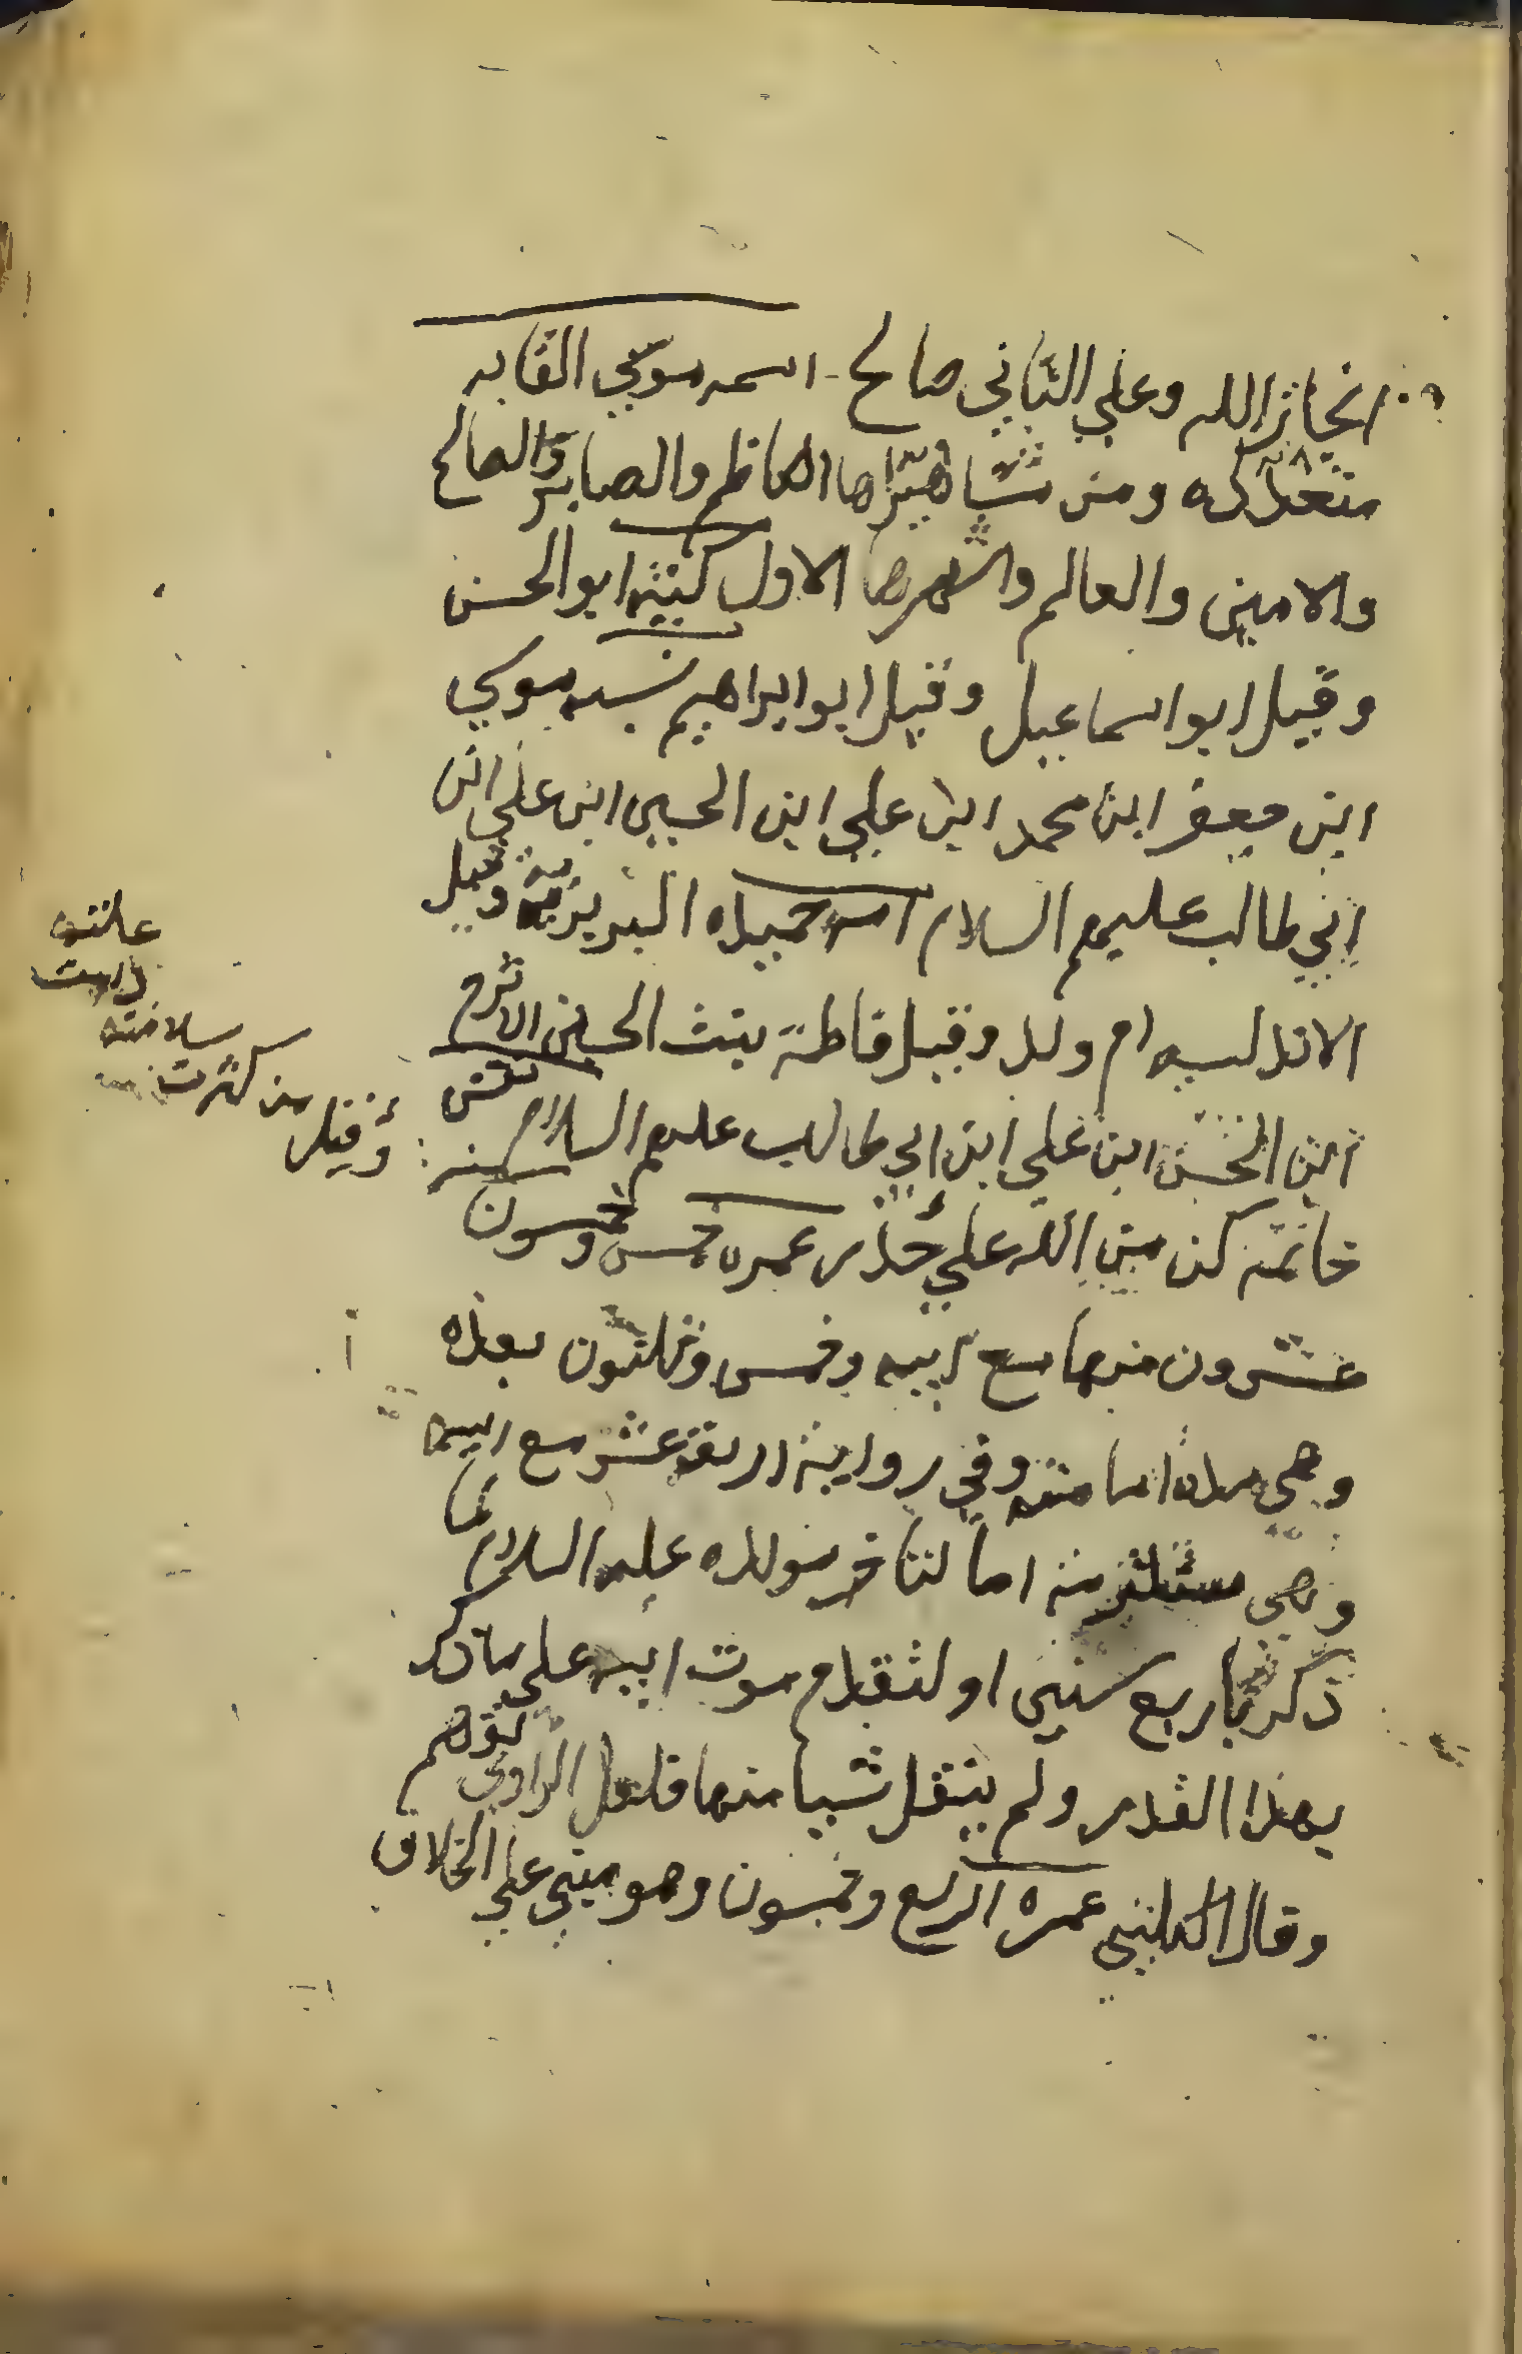 انحاز الله وعلي الثاني صالح اسمه موسي القابه
متعدده ومن مشاهيرها الكاظم والصابر والصالح
والامين والعالم واشهرها الاول كنيته ابو الحسن
وقيل ابو اسماعيل وقيل ابو ابراهيم نسبه موسي
ابن جعفر ابن محمد ابن علي ابن الحسين ابن علي ابن
ابي طالب عليهم السلام امه حميده البربرية وقيل
الاندلسيه ام ولد وقيل فاطمة بنت الحسين الاثرم
ابن الحسن ابن علي ابن ابي طالب عليهم السلام نقش
خاتمه كن من الله علي حذر عمره خمس وخمسون سنه
عشرون منها مع ابيه وخمس وثلثون بعده
وهي مدة امامته وفي رواية اربعة عشر مع ابيه
وهي مستلزمة اما لتاخر مولده عليه السلام عما
ذكرنا باربع سنين او لتقدم موت ابيه علي ما ذكر
بهذا القدر ولم ينقل شيا منها فلعل الراوي توهم
وقال الكليني عمره اربع وخمسون وهو مبني علي الخلاف
وقيل من كثرت
سلامته